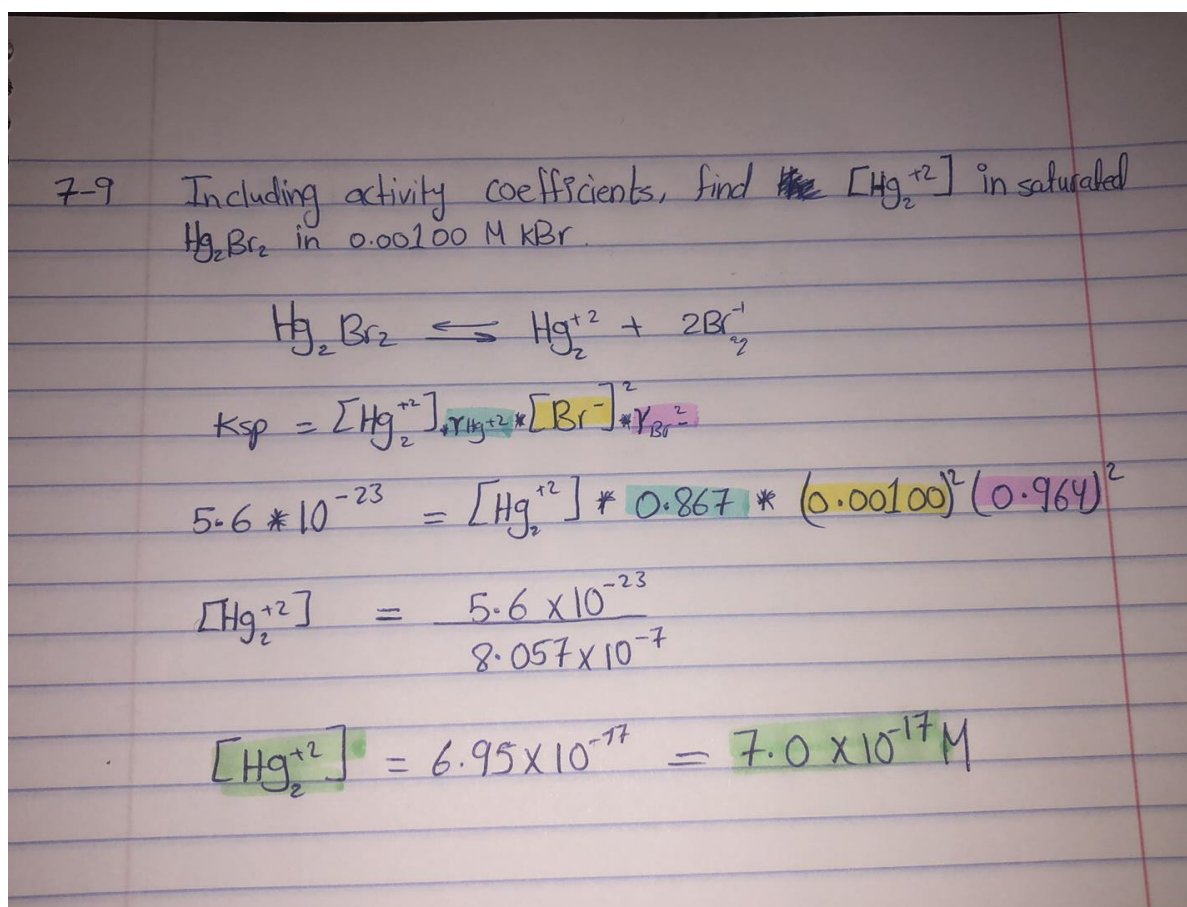 7-9 Including activity coefficients, find [Hg₂⁺²] in saturated
Hg₂Br₂ in 0.00100 M KBr.
Hg₂Br₂ ⇌ Hg₂⁺² + 2Br⁻¹
Ksp = [Hg₂⁺²] * γHg⁺² * [Br⁻]² * γBr⁻²
5.6 * 10⁻²³ = [Hg₂⁺²] * 0.867 * (0.00100)² (0.964)²
[Hg₂⁺²] = 5.6 x 10⁻²³
8.057 x 10⁻⁷
[Hg₂⁺²] = 6.95 x 10⁻¹⁷ = 7.0 x 10⁻¹⁷ M